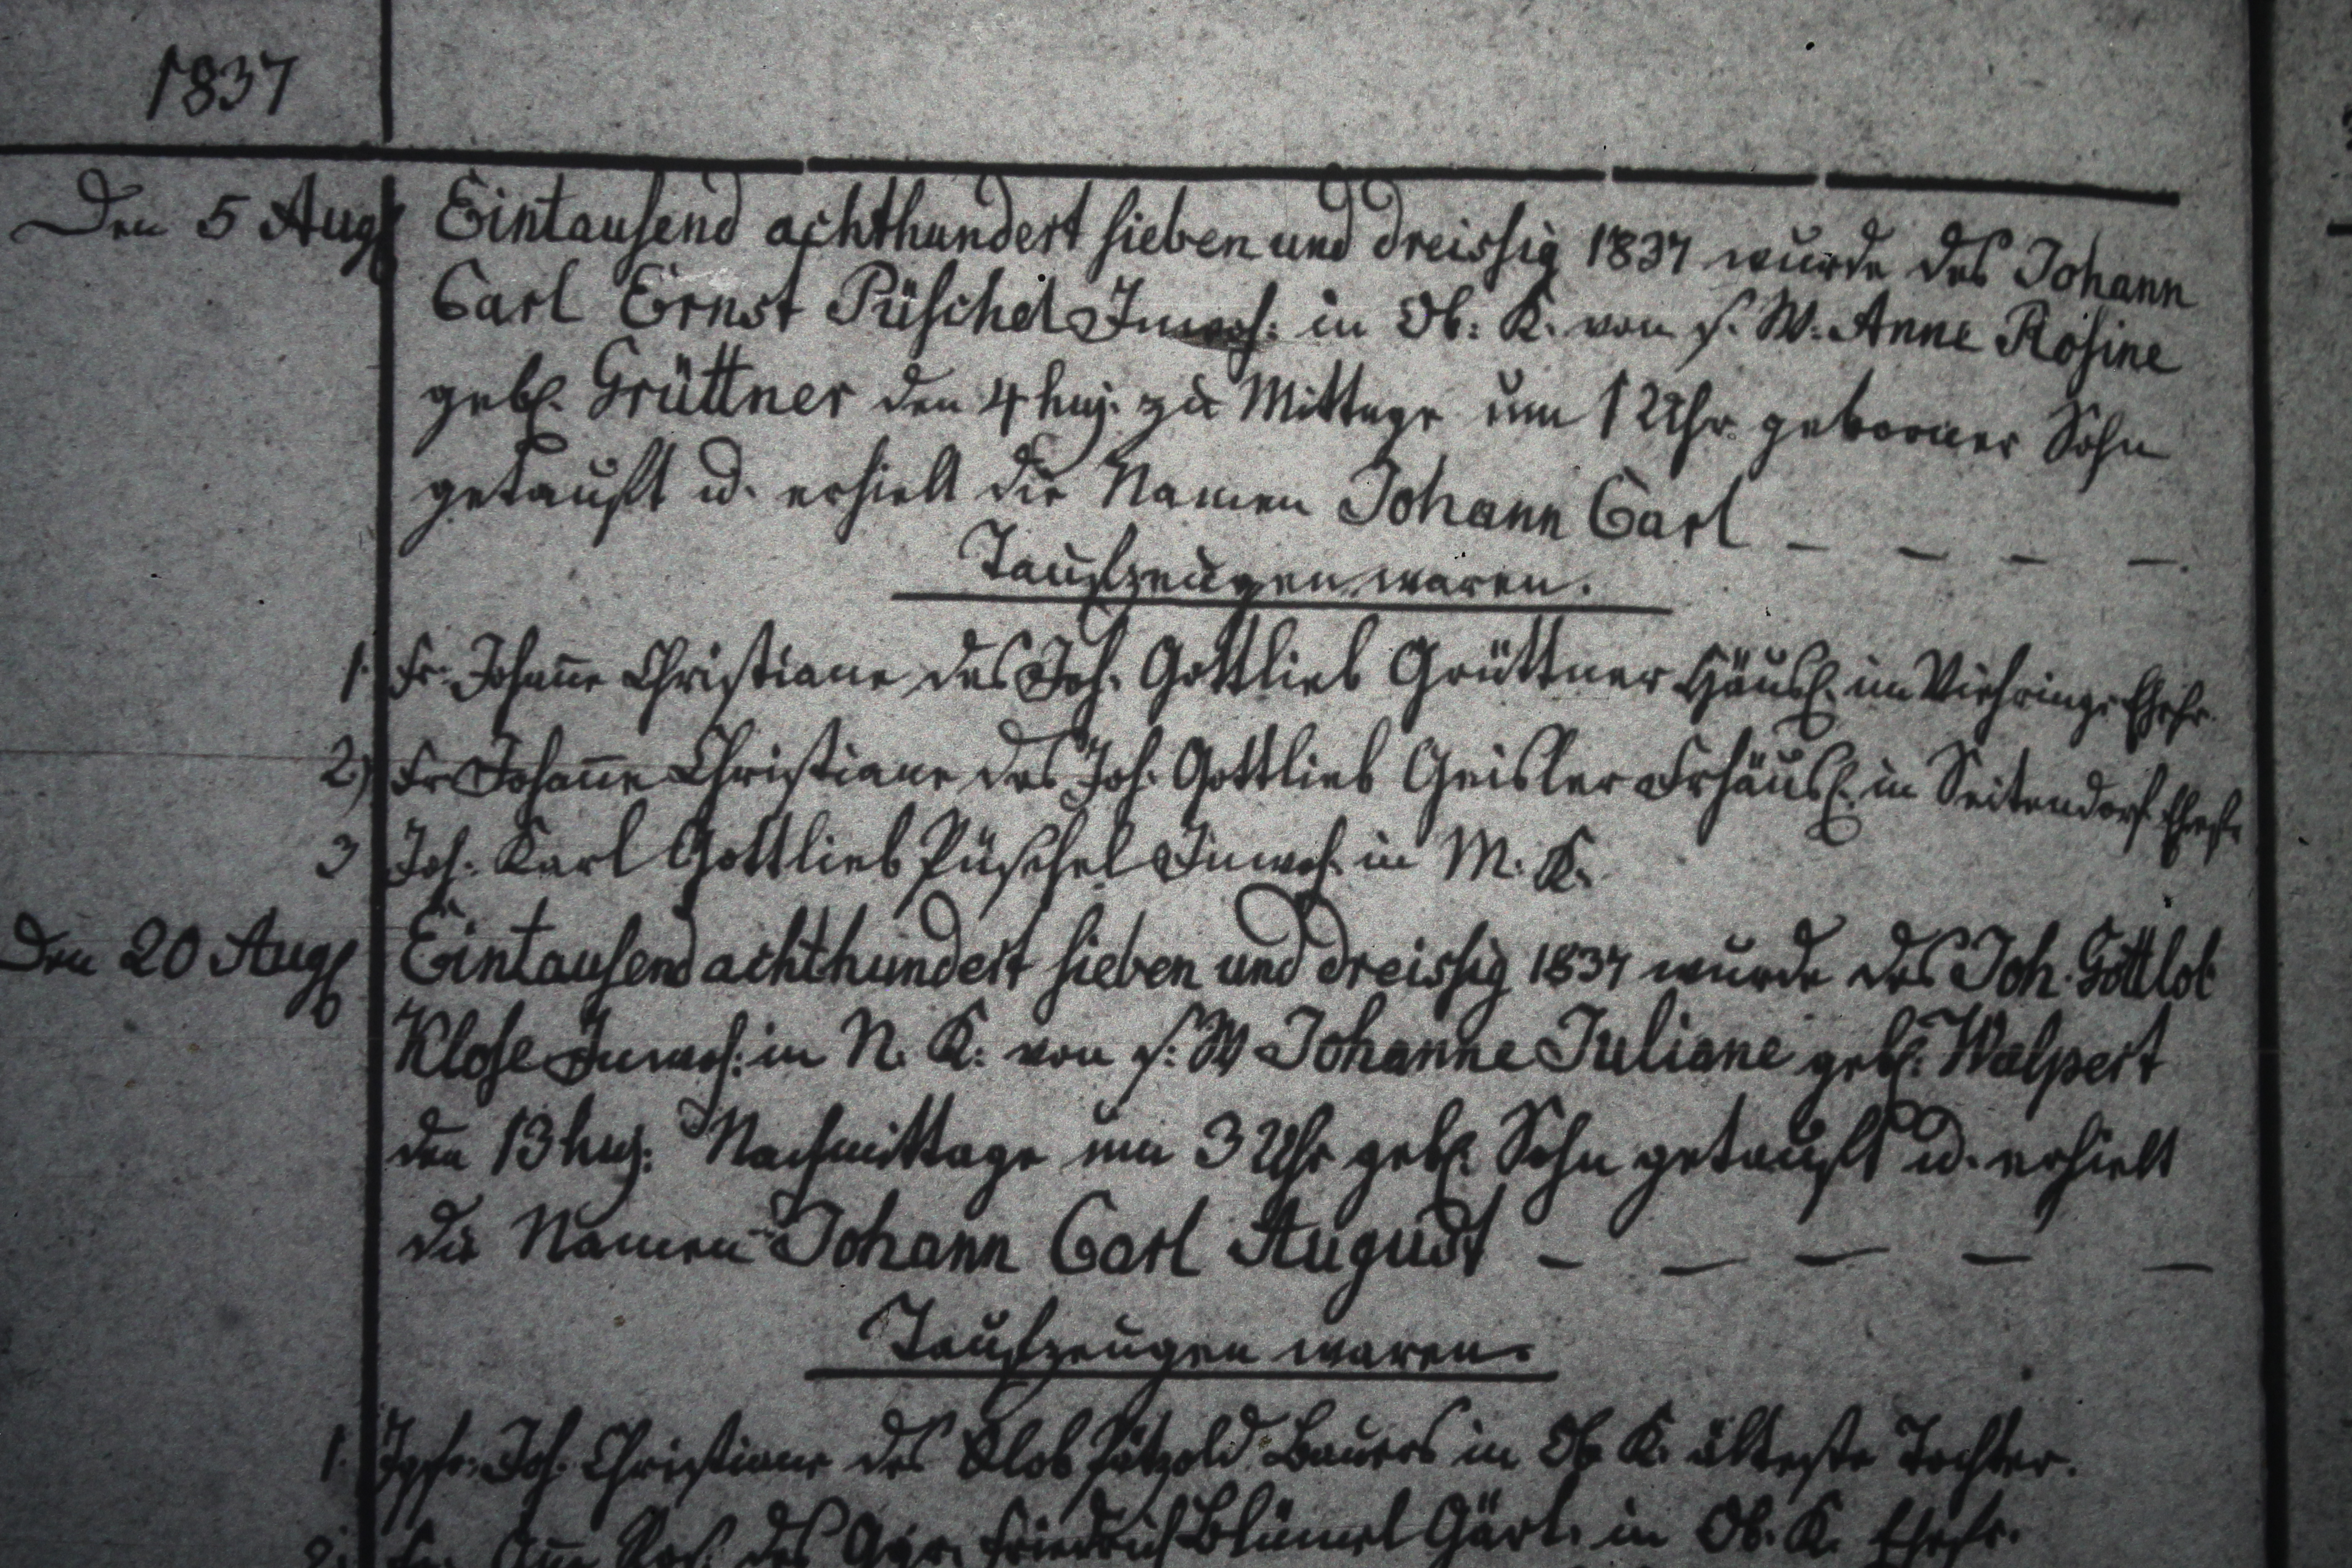 1837
Den 5 Aug Eintausend achthundert sieben und dreissig 1837 wurde des Johann
Carl Ernst Püschel Inwoh: in Ob: K. von s. W. Anne Rosine
geb. Grüttner den 4 huj. zu Mittage um 12 Uhr geborner Sohn
getauft u. erhielt die Namen Johann Carl – – – –.
Taufzeugen waren.
1. Fr. Johañe Christiane des Joh. Gottlieb Grüttner Häusl. im Viehringe Ehefr.
2) Fr Johañe Christiane des Joh. Gottlieb Geisler Frhäusl. in Seitendorf Ehefr
3 Joh. Karl Gottlieb Püschel Inwoh. in M. K.
Den 20 Aug Eintausend achthundert sieben und dreissig 1837 wurde des Joh. Gottlob
Klose Inwoh: in N. K: von s: W Johanne Juliane geb. Walpert
den 13 huj: Nachmittage um 3 Uhr geb. Sohn getauft u. erhielt
die Namen Johann Carl August – – – – –
Taufzeugen waren.
1. Jgfr. Joh. Christiane des Pätzold Bauers in Ob K. älteste Tochter.
2. Fr. Añe Ros. des Friedrich Blümel Gärt. in Ob. K. Ehefr.